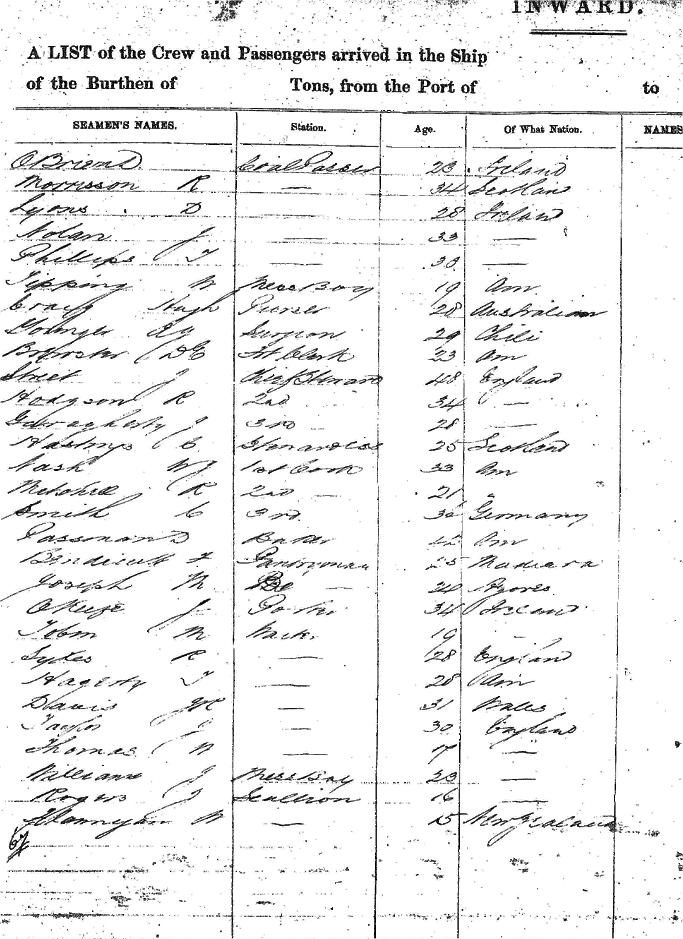 INWARD.
A LIST of the Crew and Passengers arrived in the Ship
of the Burthen of Tons, from the Port of to
SEAMEN'S NAMES. Station. Age. Of What Nation. NAMES
O'Brien Coal Passer 23 Ireland
Morrisson R — 34 Scotland
Lyons D — 28 Ireland
Nolan J — 33 —
Phillips T — 30 —
Tipping W Mess Boy 19 Am
Craig Hugh Purser 28 Australian
Younger Surgeon 29 Chili
Brewster DC Clerk 23 Am
Street J Chief Steward 48 England
Hodgson R 2nd 34 —
J 3rd 28 —
Hastings C Stewardess 25 Scotland
Nash WJ 1st Cook 33 Am
Mitchell R 2nd — 21 "
Smith C 3rd Germany
D Baker Am
Pantryman 25 Madiara
Joseph M — Azores
O'Keefe J Porter 34 Ireland
Tobin M 19 —
Sykes R — 28 England
Hagerty T — 28 Am
Davis — 31 Wales
Taylor — 30 England
Thomas W — —
Williams J Mess Boy 23 —
Rogers J Scullion 16 —
W — 15 New Zealand
67